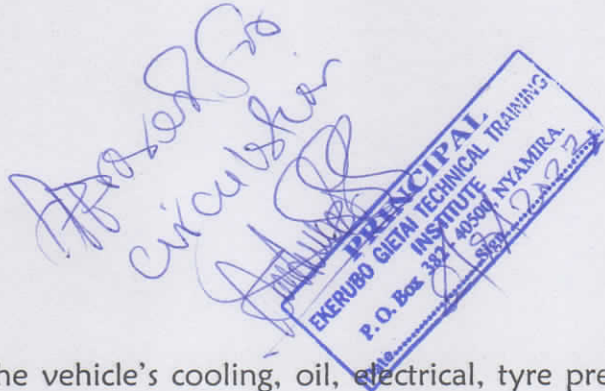 Approved for
circulation
PRINCIPAL
EKERUBO GIETAI TECHNICAL TRAINING
INSTITUTE
P. O. Box 387 - 40500, NYAMIRA.
Date............ Sign............
he vehicle's cooling, oil, electrical, tyre pre